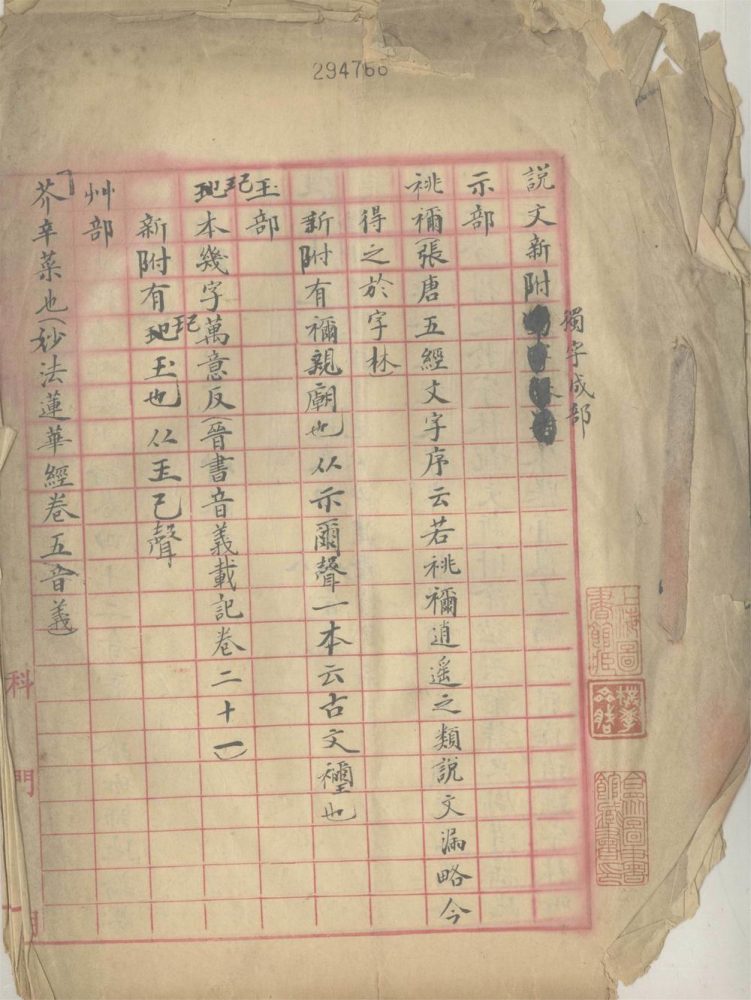 294766
説文新附
獨字成部
示部
祧禰張唐五經文字序云若祧禰逍遥之類説文漏略今
得之於字林
新附有禰親廟也从示爾聲一本云古文𥜬也
玉部
玘本幾字萬意反(晉書音義載記卷二十一)
新附有玘玉也从玉己聲
艸部
芥辛菜也(妙法蓮華經卷五音義)
上海圖書館藏
合衆圖書館藏書印
科
門